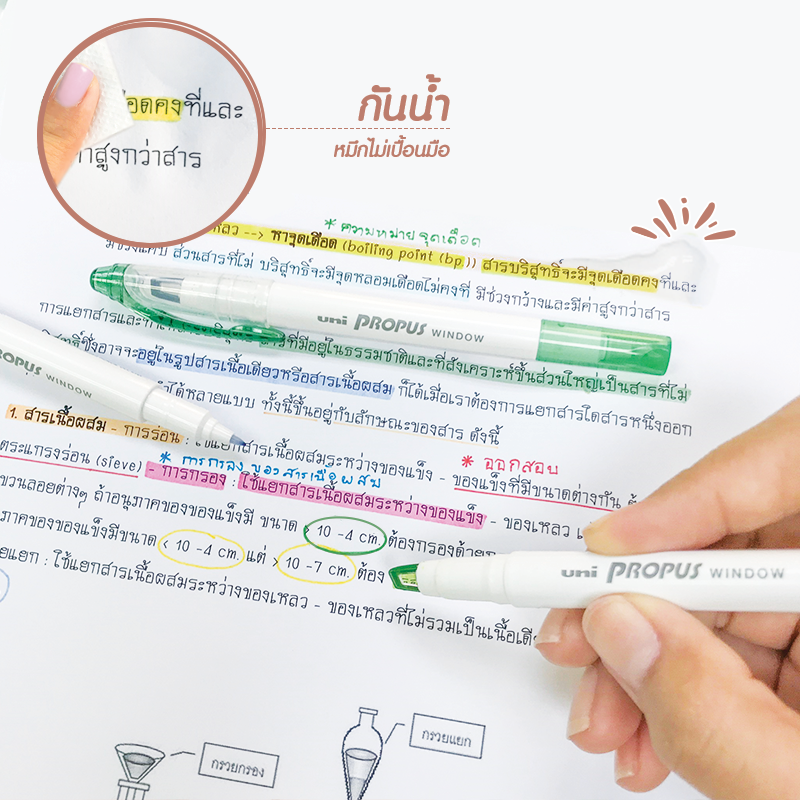 กันน้ำ
หมึกไม่เปื้อนมือ
ือดคงที่และ
่าสูงกว่าสาร
* ความหมายจุดเดือด
หลว --> หาจุดเดือด (boiling point (bp)) สารบริสุทธิ์จะมีจุดเดือดคงที่และ
ส่วนสารที่ไม่ บริสุทธิ์จะมีจุดหลอมเดือดไม่คงที่ มีช่วงกว้างและมีค่าสูงกว่าสาร
uni PROPUS WINDOW
การแยกสารและ
ที่มีอยู่ในธรรมชาติและที่สังเคราะห์ขึ้นส่วนใหญ่เป็นสารที่ไม่
PROPUS WINDOW
ซึ่งอาจจะอยู่ในรูปสารเนื้อเดียวหรือสารเนื้อผสม ก็ได้เมื่อเราต้องการแยกสารใดสารหนึ่งออก
ได้หลายแบบ ทั้งนี้ขึ้นอยู่กับลักษณะของสาร ดังนี้
1. สารเนื้อผสม - การร่อน : ใช้แยกสารเนื้อผสมระหว่างของแข็ง - ของแข็งที่มีขนาดต่างกัน
* ออกสอบ
* การกรอง ของสารเนื้อผสม
ตระแกรงร่อน (sieve) - การกรอง : ใช้แยกสารเนื้อผสมระหว่างของแข็ง - ของเหลว
ขวนลอยต่างๆ ถ้าอนุภาคของของแข็งมี ขนาด > 10 -4 cm. ต้องกรองด้วย
ภาคของของแข็งมีขนาด < 10 -4 cm. แต่ > 10 -7 cm. ต้อง
uni PROPUS WINDOW
ยแยก : ใช้แยกสารเนื้อผสมระหว่างของเหลว - ของเหลวที่ไม่รวมเป็นเนื้อเดีย
กรวยกรอง
กรวยแยก